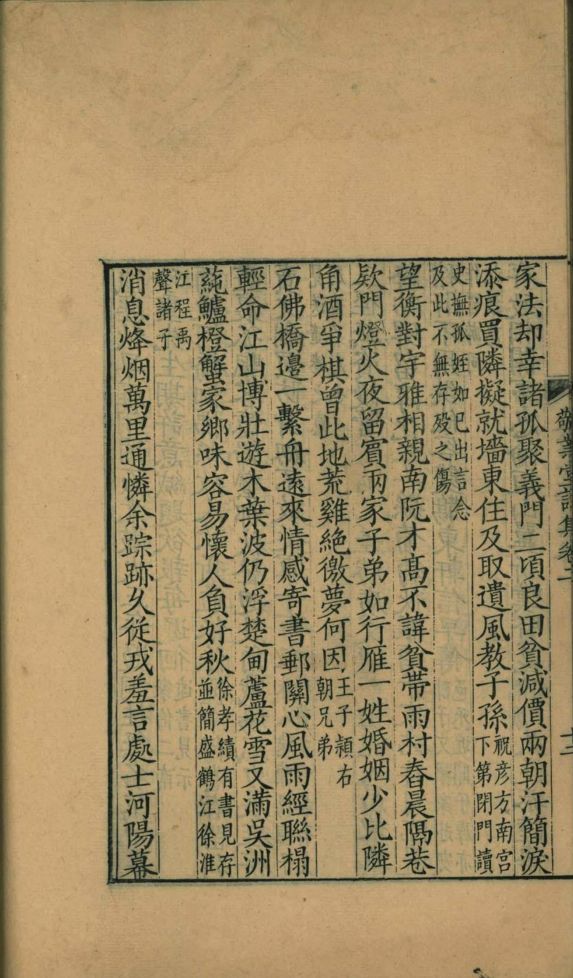 家法却幸諸孤聚義門二頃良田貧減價兩朝汗簡淚
添痕買隣擬就墻東住及取遺風教子孫祝彦方南宫下第閉門讀
史撫孤姪如已出言念及此不無存殁之傷
望衡對宇雅相親南阮才髙不諱貧帶雨村舂晨隔巷
欵門燈火夜留賓兩家子弟如行雁一姓婚姻少比隣
角酒爭棋曾此地荒雞絶徼夢何因王子穎右朝兄弟
石佛橋邊一繫舟遠來情感寄書郵關心風雨經聯榻
輕命江山博壯遊木葉波仍浮楚甸蘆花雪又滿吳洲
蒓鱸橙蟹家鄉味容易懷人負好秋徐孝績有書見存並簡盛鶴江徐淮
江程禹聲諸子
消息烽烟萬里通憐余踪跡久從戎羞言處士河陽幕
敬業堂詩集卷二
十二